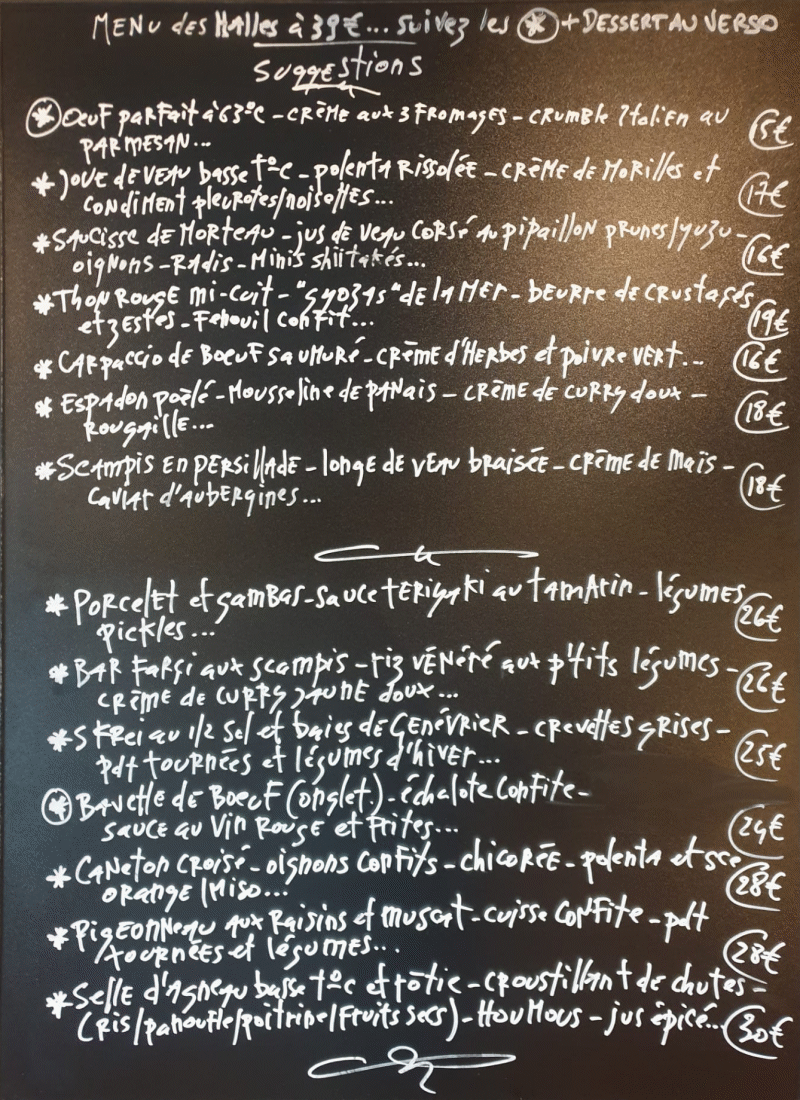 MENU des Halles à 39€... suivez les * + DESSERT AU VERSO
Suggestions
* Œuf parfait à 63°C - crème aux 3 fromages - crumble italien au 15€
parmesan...
* Joue de veau basse t°c - polenta rissolée - crème de morilles et
condiment pleurotes/noisettes... 17€
* Saucisse de Morteau - jus de veau corsé au pipaillon prunes/yuzu -
oignons - radis - minis shiitakés... 16€
* Thon rouge mi-cuit - "gyozas" de la mer - beurre de crustacés
et zestes - fenouil confit... 19€
* Carpaccio de boeuf saumuré - crème d'herbes et poivre vert... 16€
* Espadon poêlé - mousseline de panais - crème de curry doux -
rougaille... 18€
* Scampis en persillade - longe de veau braisée - crème de maïs -
caviar d'aubergines... 18€
* Porcelet et gambas - sauce teriyaki au tamarin - légumes
pickles... 26€
* Bar farci aux scampis - riz vénéré aux p'tits légumes -
crème de curry jaune doux... 26€
* Skrei au 1/2 sel et baies de genévrier - crevettes grises -
pdt tournées et légumes d'hiver... 25€
* Bavette de boeuf (onglet) - échalote confite -
sauce au vin rouge et frites... 24€
* Caneton croisé - oignons confits - chicorée - polenta et sce
orange/miso... 28€
* Pigeonneau aux raisins et muscat - cuisse confite - pdt
tournées et légumes... 28€
* Selle d'agneau basse t°c et rôtie - croustillant de chutes -
(ris/panoufle/poitrine/fruits secs) - houmous - jus épicé... 30€